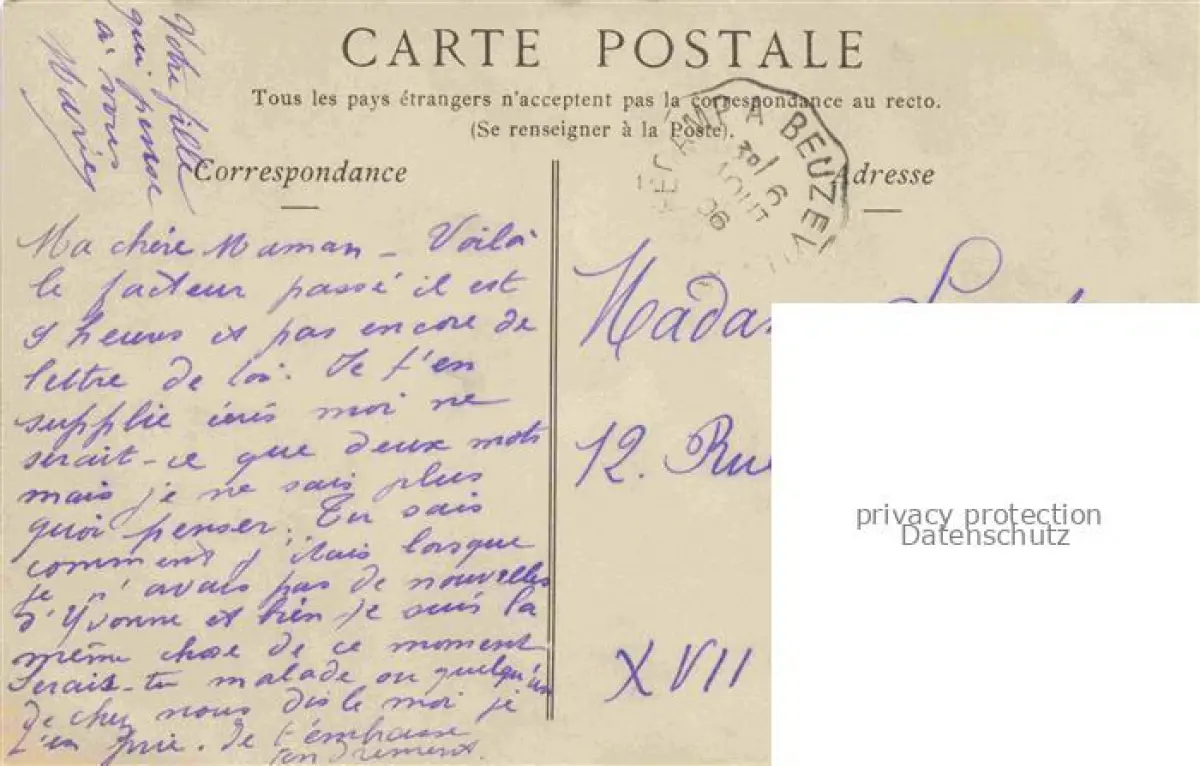 CARTE POSTALE
Tous les pays étrangers n'acceptent pas la correspondance au recto.
(Se renseigner à la Poste).
Correspondance
Adresse
FÉCAMP A BEUZEV
30/6
AOUT
06
Ma chère Maman – Voilà
le facteur passé il est
9 heures et pas encore de
lettre de toi. Je t'en
supplie écris moi ne
serait-ce que deux mots
mais je ne sais plus
quoi penser. Tu sais
comment j'étais lorsque
je n'avais pas de nouvelles
d'Yvonne et bien je suis la
même chose de ce moment
Serais-tu malade ou quelqu'un
de chez nous dis le moi je
t'en prie. Je t'embrasse
tendrement.
Votre fille
qui pense
à vous
Mada
12. Rue
XVII
privacy protection
Datenschutz